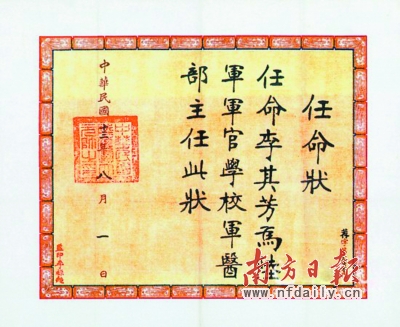 任命狀
任命李其芳為陸
軍軍官學校軍醫
部主任此狀
中華民國十三年八月一日
南方日报
www.nfdaily.cn